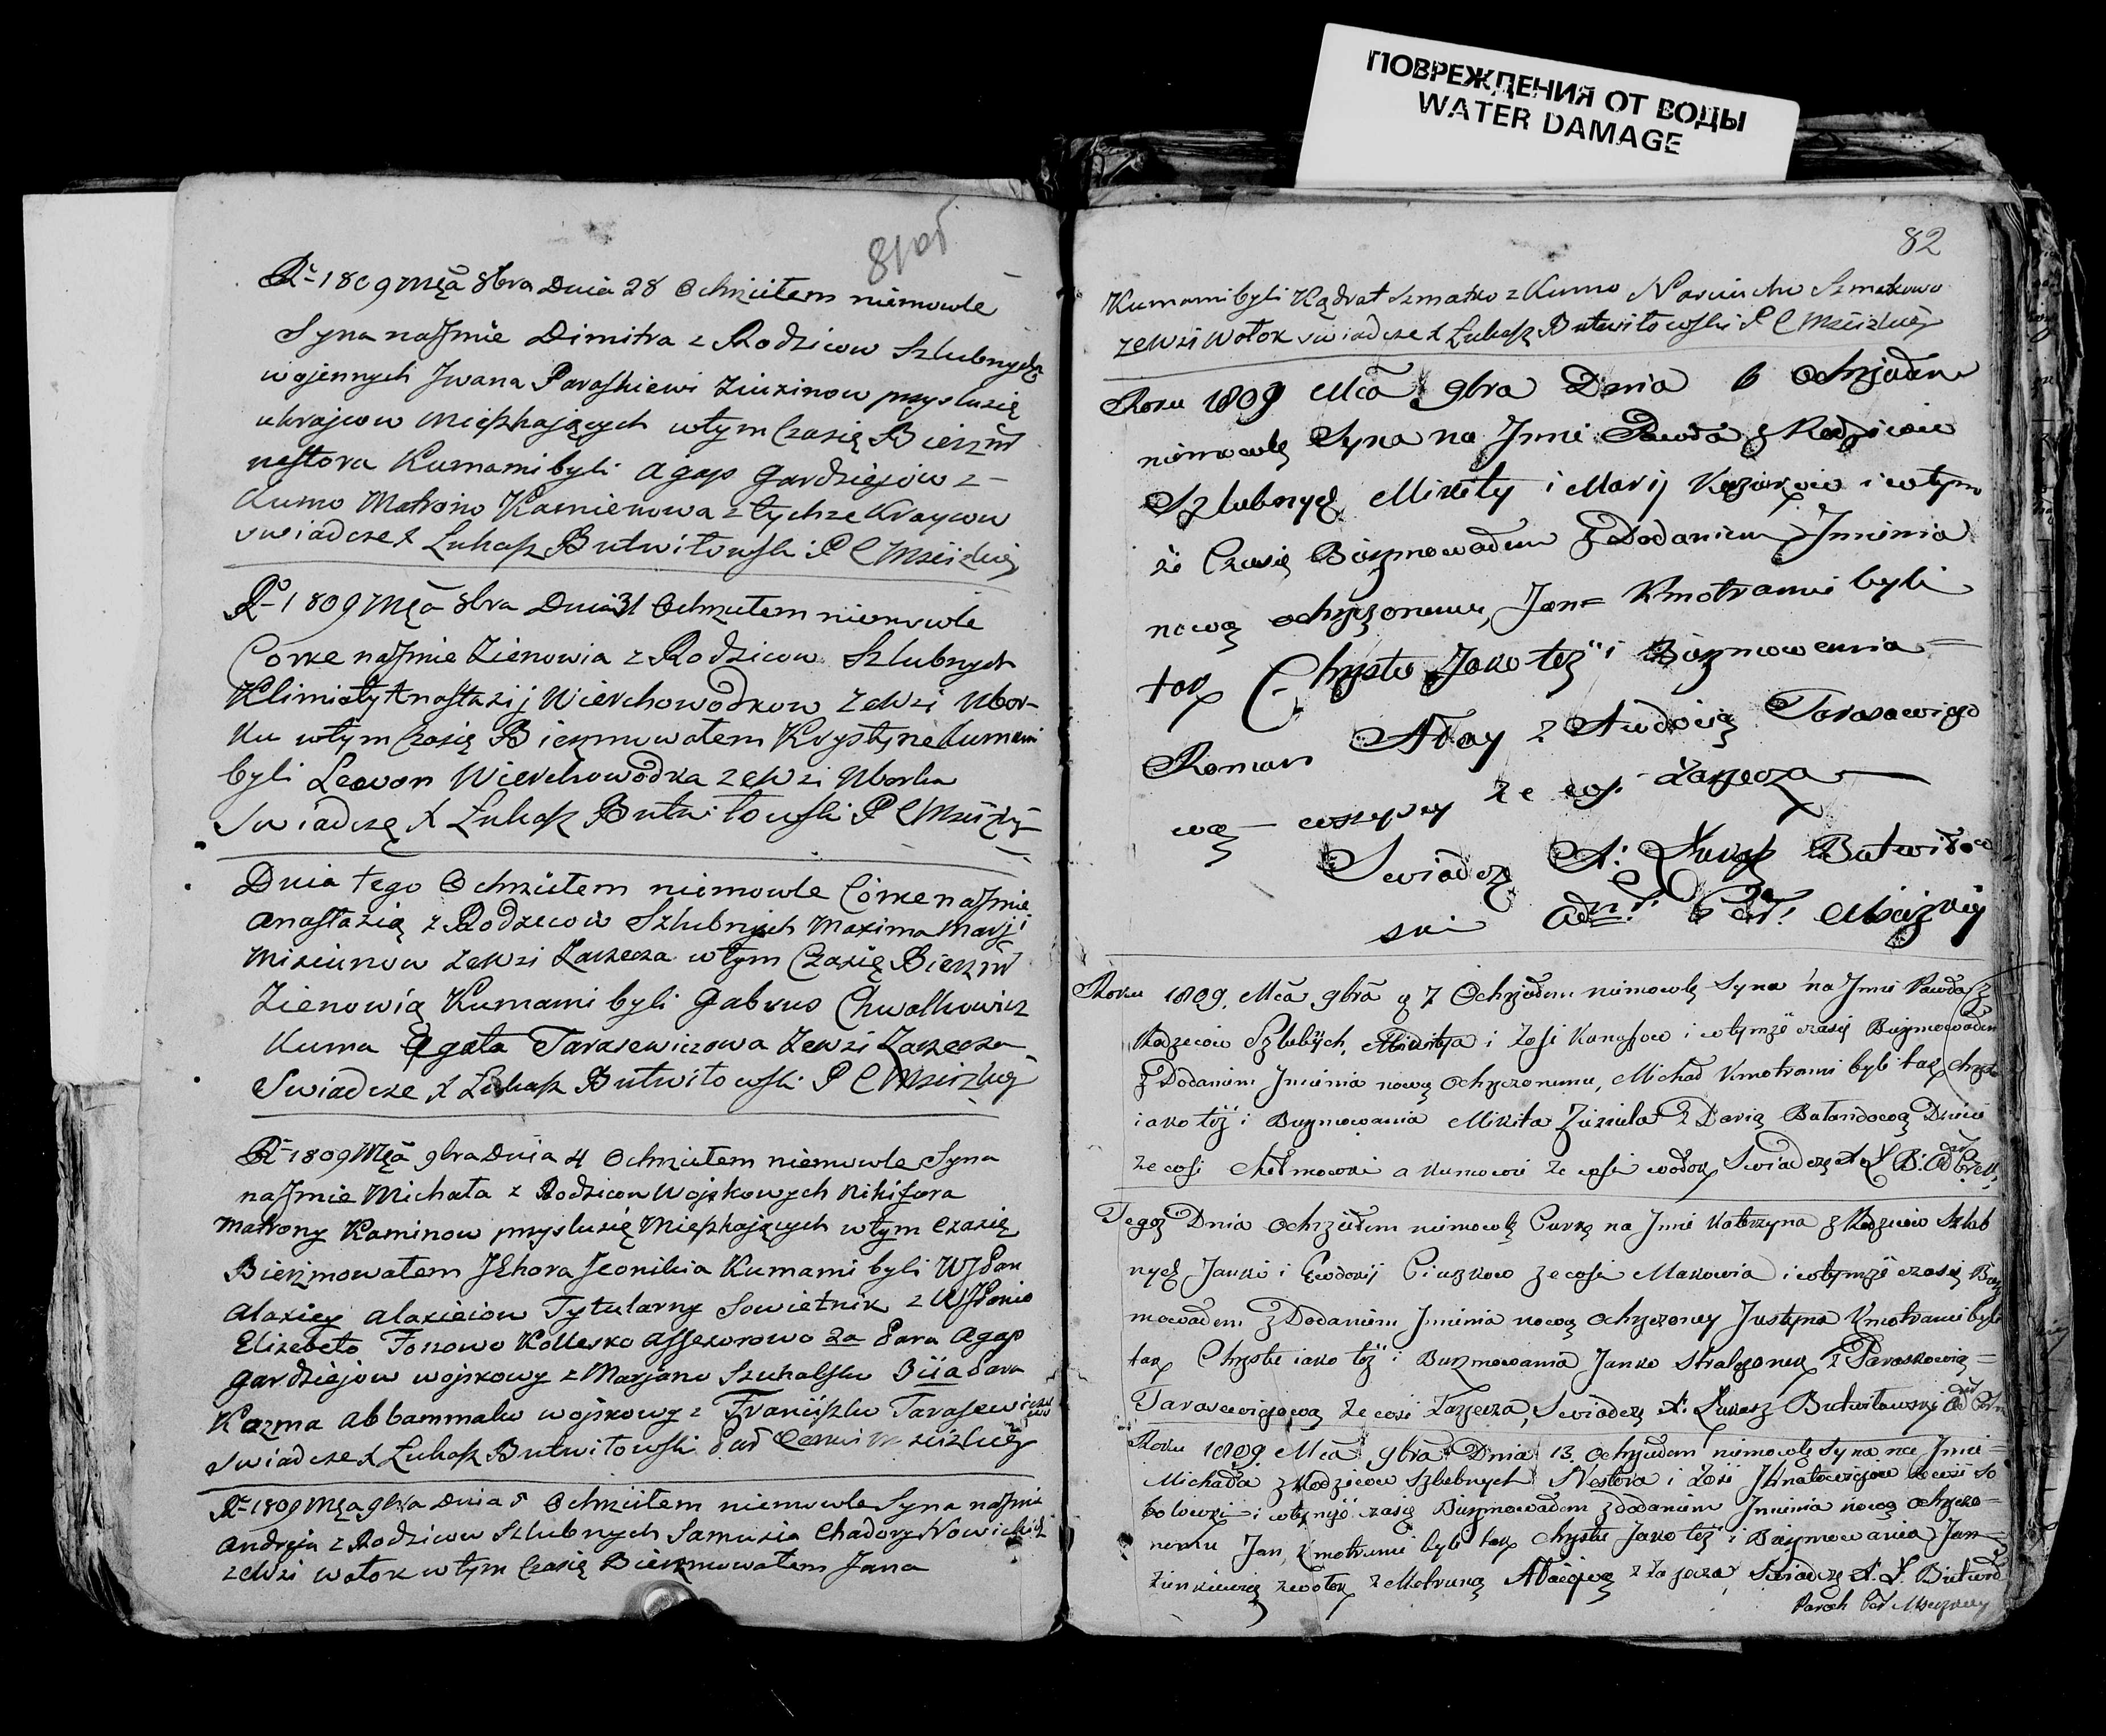 ПОВРЕЖДЕНИЯ ОТ ВОДЫ
WATER DAMAGE
81об
R° 1809 Mcą 8bra Dnia 28 Ochrzciłem niemowle
Syna na Jmie Dimitra z Rodzicow Szlubnych
wojennych Jwana Paraskiewi Ziuzinow przysluzię
ukrajcow Mieszkających wtym Czasię Bierzm
nestora Kumami byli Agap Gardziejow z
Kumo Matrono Kamienowa z tychze Kraycow
swiadcze X Łukasz Butwiłowski P C Mscizkiej
R° 1809 Mcą 8bra Dnia 31 Ochrzciłem niemowle
Corke na Jmie Zienowia z Rodzicow Szlubnych
Klimiaty Anastazij Wierchowodkow ze Wsi Ubor-
ku wtym Czasię Bierzmowałem Krystyne Kumami
byli Leowon Wierchowodka ze Wsi Uborka
Swiadczę X Łukasz Butwiłowski P C Mscizkiej
Dnia tego Ochrzciłem niemowle Córke na Jmie
Anastazią z Rodzicow Szlubnych Maxima Marji
Misiunow ze Wsi Zarzecza wtym Czasię Bierzm
Zienowią Kumami byli Gabrus Chwalkowicz
Kuma Agata Tarasewiczowa ze Wsi Zarzecza
Swiadcze X Łukasz Butwiłowski P C Mscizkiej
R° 1809 Mcą 9bra Dnia 4 Ochrzciłem niemowle Syna
na Jmie Michała z Rodzicow Wojskowych Nikifora
Matrony Kaminow przysluzię Mieszkających wtym Czasię
Bierzmowałem Jeonikia Kumami byli WJPan
Alaxiey Alaxieiow Tytularny Sowietnik z WJPanio
Elizebeto Foxowo Kollesko Assesorowo 2a Para Agap
Gardziejow wojskowy z Marjano Szuhalsku 3iia Para
Kozma Abbammaku wojskowy z Franciszku Tarasewiczowo
swiadcze X Łukasz Butwiłowski Mscizkiej
R° 1809 Mcą 9bra Dnia 5 Ochrzciłem niemowle Syna na Jmie
Andreja z Rodzicow Szlubnych Samusia Chadory Nowickich
ze Wsi Wołok wtym Czasię Bierzmowałem Jana
82
Kumami byli Kądrat Szmatko z Kumo Szmatkowo
ze Wsi Wołok swiadcze X Łukasz Butwiłowski P C Mscizkiej
Roku 1809 Mcą 9bra Dnia 6 Ochrzciłem
niemowlę Syna na Jmie Pawła z Rodzicow
Szlubnych Mikity i Marij i wtym
że Czasię Bierzmowałem z Dodaniem Jmienia
nową ochrzczonemu, Jan= Kmotrami byli
tak Chrztu Jako też i Bierzmowania=
Roman Ałay z Audocią Tarasewiczo
wą — wszyscy ze wsi Zarzecza —
Swiadczę X: Łukasz Butwiłow
ski Mscizkiej
Roku 1809. Mcą 9bra 7 Ochrzciłem niemowlę Syna na Jmie Pawła z
Rodzicow Szlubych, i Zosi i wtymże czasię Bierzmowałem
z Dodaniem Jmienia nową Ochrzczonemu, Michał Kmotrami byli tak Chrztu
iako też i Bierzmowania Mikita Ziuziula z Darią
ze wsi a Kumowie ze wsi wołok Swiadczę X Ł B.
Tegoż Dnia Ochrzciłem niemowlę Curkę na Jmie Katarzyna z Rodzicow Szlub
nych Janki i Ewdokij ze wsi Makowia i wtymże czasię Bierz
mowałem z Dodaniem Jmienia nową Ochrzczoney Justyna Kmotrami byli
tak Chrztu iako też i Bierzmowania Janko z Paraskowią=
Tarasewiczową ze wsi Zarzecza, Swiadczę X: Łukasz Butwiłowski
Roku 1809. Mcą 9bra Dnia 13. Ochrzciłem niemowlę Syna na Jmie=
Michała z Rodzicow Szlubnych Nestora i Zosi Jhnatowiczow ze wsi So
bolowki i wtymże czasię Bierzmowałem z dodaniem Jmienia nową ochrzczo=
nemu Jan, Kmotrami byli tak Chrztu Jako też i Bierzmowania Jan=
Zinkiewicz z wołok z Matruną z Zarzecza Swiadczę X. Ł. Butwił
Paroch